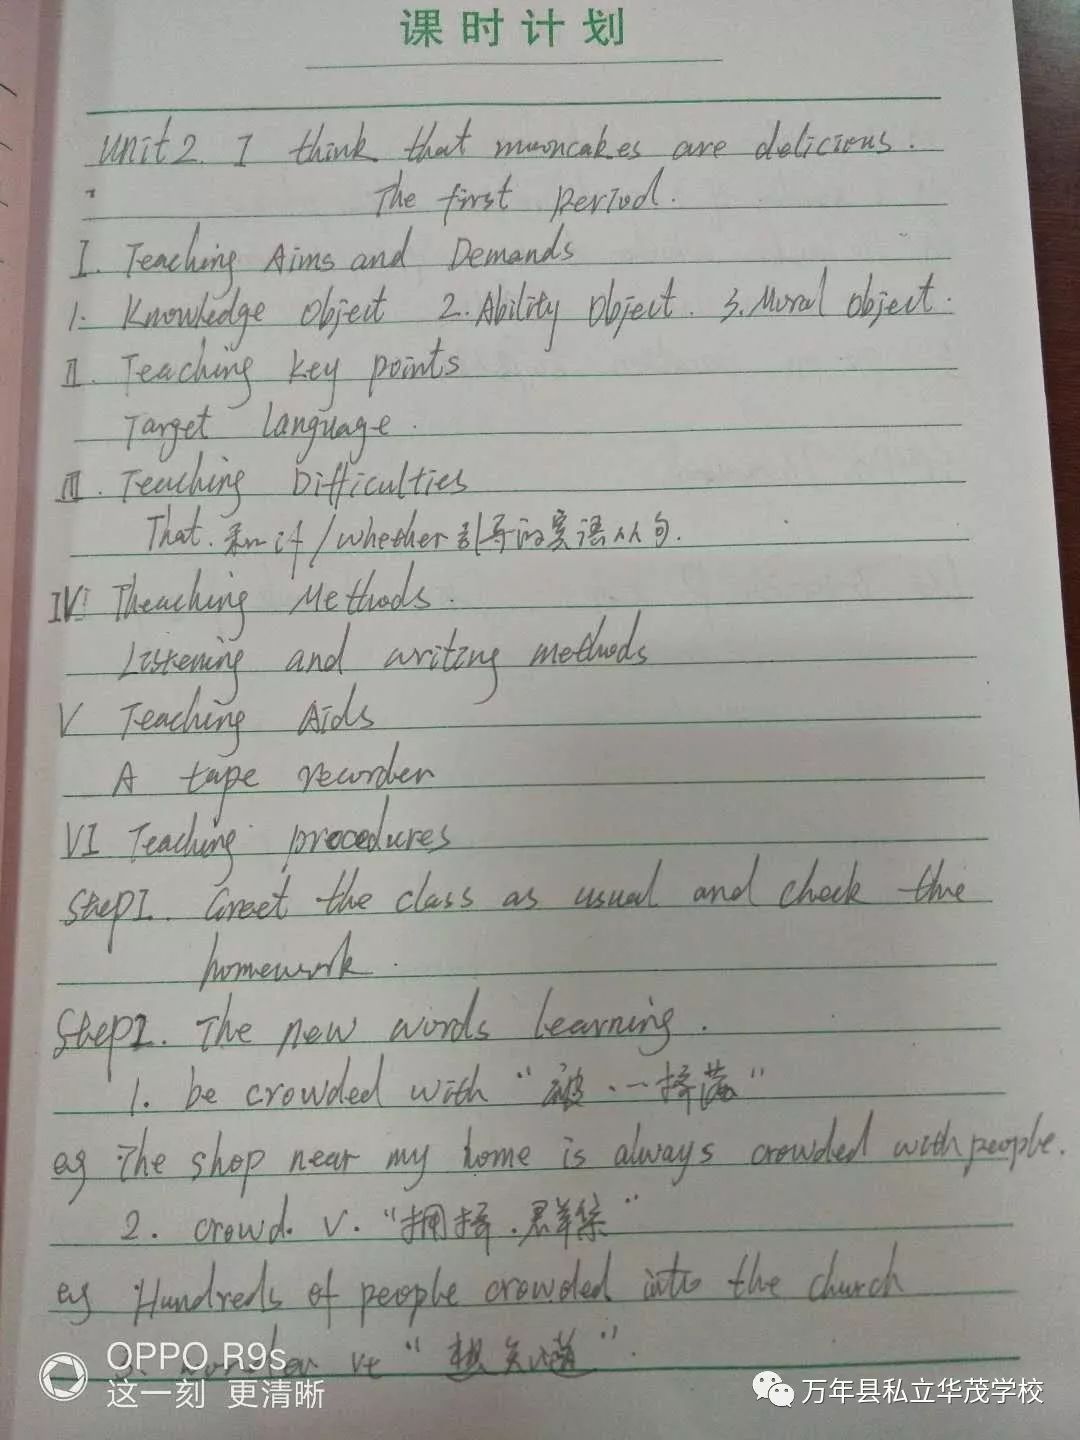 课时计划
Unit 2. I think that mooncakes are delicious.
The first period.
I. Teaching Aims and Demands
1. Knowledge object 2. Ability object. 3. Moral object.
II. Teaching key points
Target language.
III. Teaching Difficulties
That. 和 if / whether 引导的宾语从句.
IV. Theaching Methods.
Listening and writing methods
V Teaching Aids
A tape recorder
VI Teaching procedures
Step I. Greet the class as usual and check the
homework.
Step 2. The new words learning.
1. be crowded with “被...挤满”
eg The shop near my home is always crowded with people.
2. crowd. v. “拥挤.群集”
eg Hundreds of people crowded into the church
3. wonder vt “想知道”.
OPPO R9s
这一刻 更清晰
万年县私立华茂学校